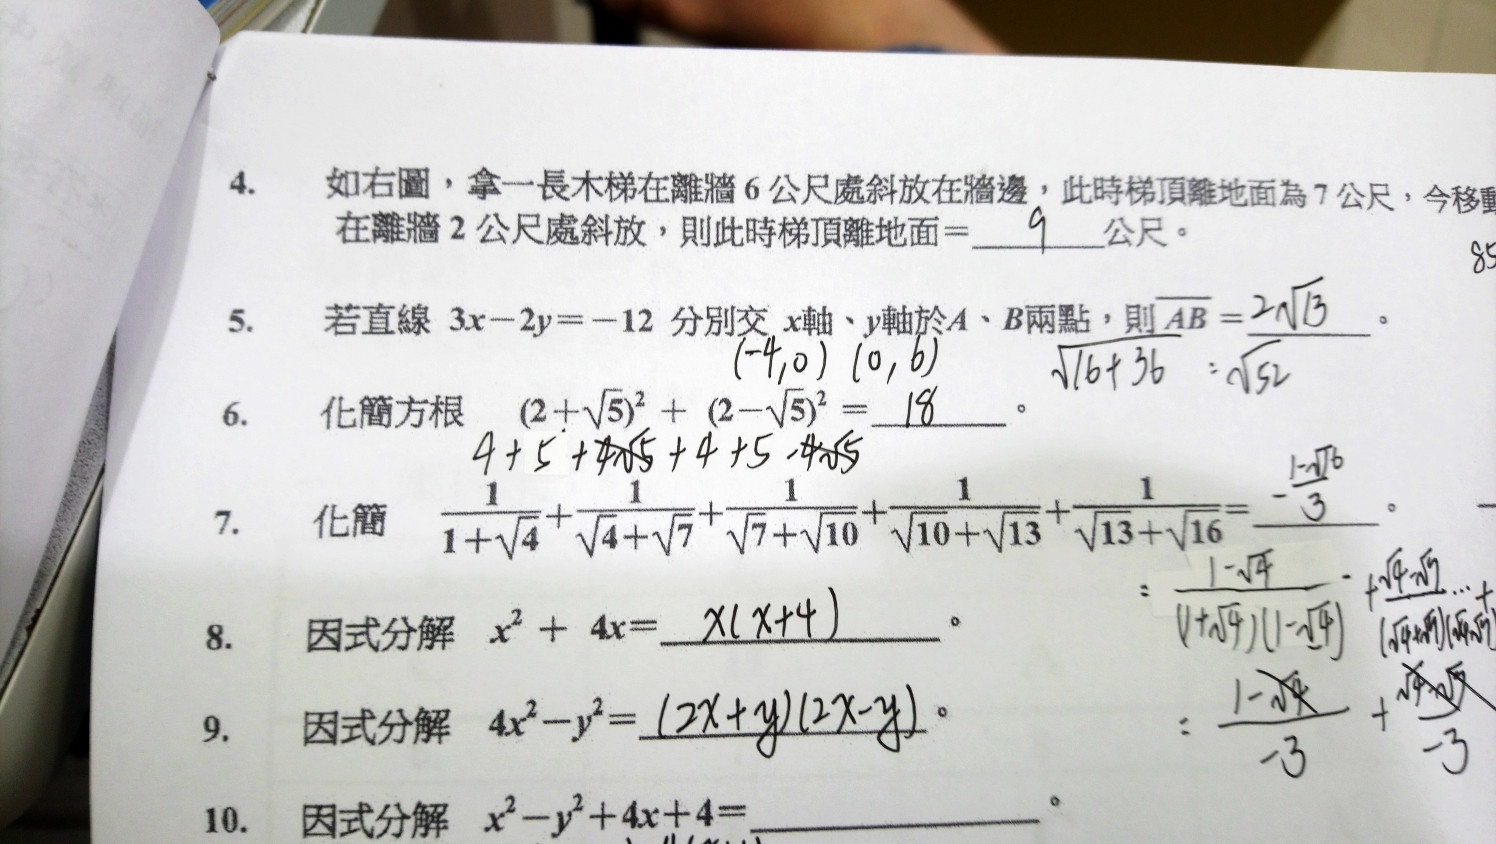 4. 如右圖，拿一長木梯在離牆 6 公尺處斜放在牆邊，此時梯頂離地面為 7 公尺，今移動
在離牆 2 公尺處斜放，則此時梯頂離地面＝ 9 公尺。
85
5. 若直線 3x－2y＝－12 分別交 x軸、y軸於A、B兩點，則 \overline{AB} ＝ 2√13 。
(-4,0) (0,6) √(16+36) = √52
6. 化簡方根 (2＋√5)² ＋ (2－√5)² ＝ 18 。
4+5+4√5+4+5-4√5
7. 化簡 1/(1＋√4)＋1/(√4＋√7)＋1/(√7＋√10)＋1/(√10＋√13)＋1/(√13＋√16)＝ -(1-√16)/3 。
= (1-√4)/((1+√4)(1-√4)) + (√4-√7)/((√4+√7)(√4-√7)) ... +
8. 因式分解 x² ＋ 4x＝ x(x+4) 。
= (1-√4)/-3 + (√4-√7)/-3
9. 因式分解 4x²－y²＝ (2x+y)(2x-y) 。
10. 因式分解 x²－y²＋4x＋4＝ 。